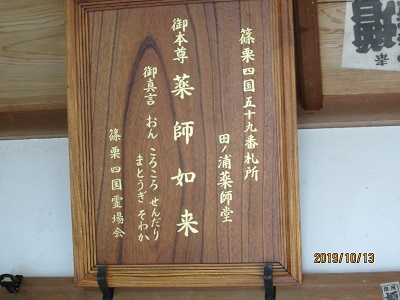 篠栗四国五十九番札所
田ノ浦薬師堂
御本尊 薬師如来
御真言 おん ころころ せんだり
まとうぎ そわか
篠栗四国霊場会
2019/10/13